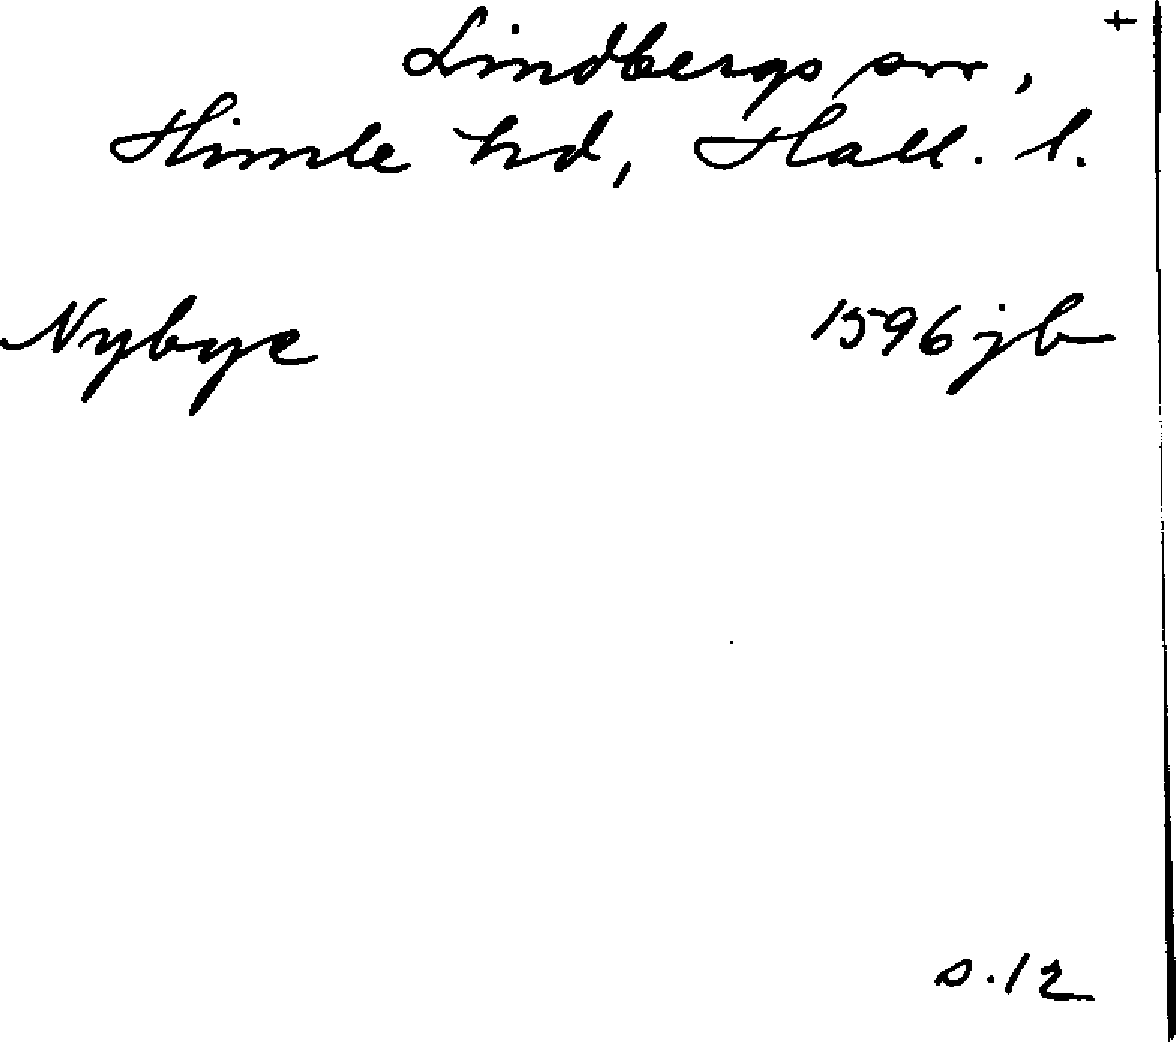 +
Lindbergs srr,
Himle hd, Hall. l.
Nybye 1596 jb
s. 12